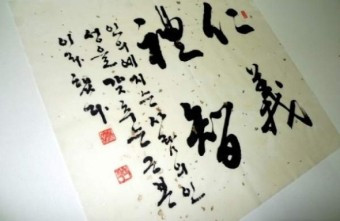 仁義
禮智
인의예지는 사람의 인
성을 갖추는 근본
이라 했다